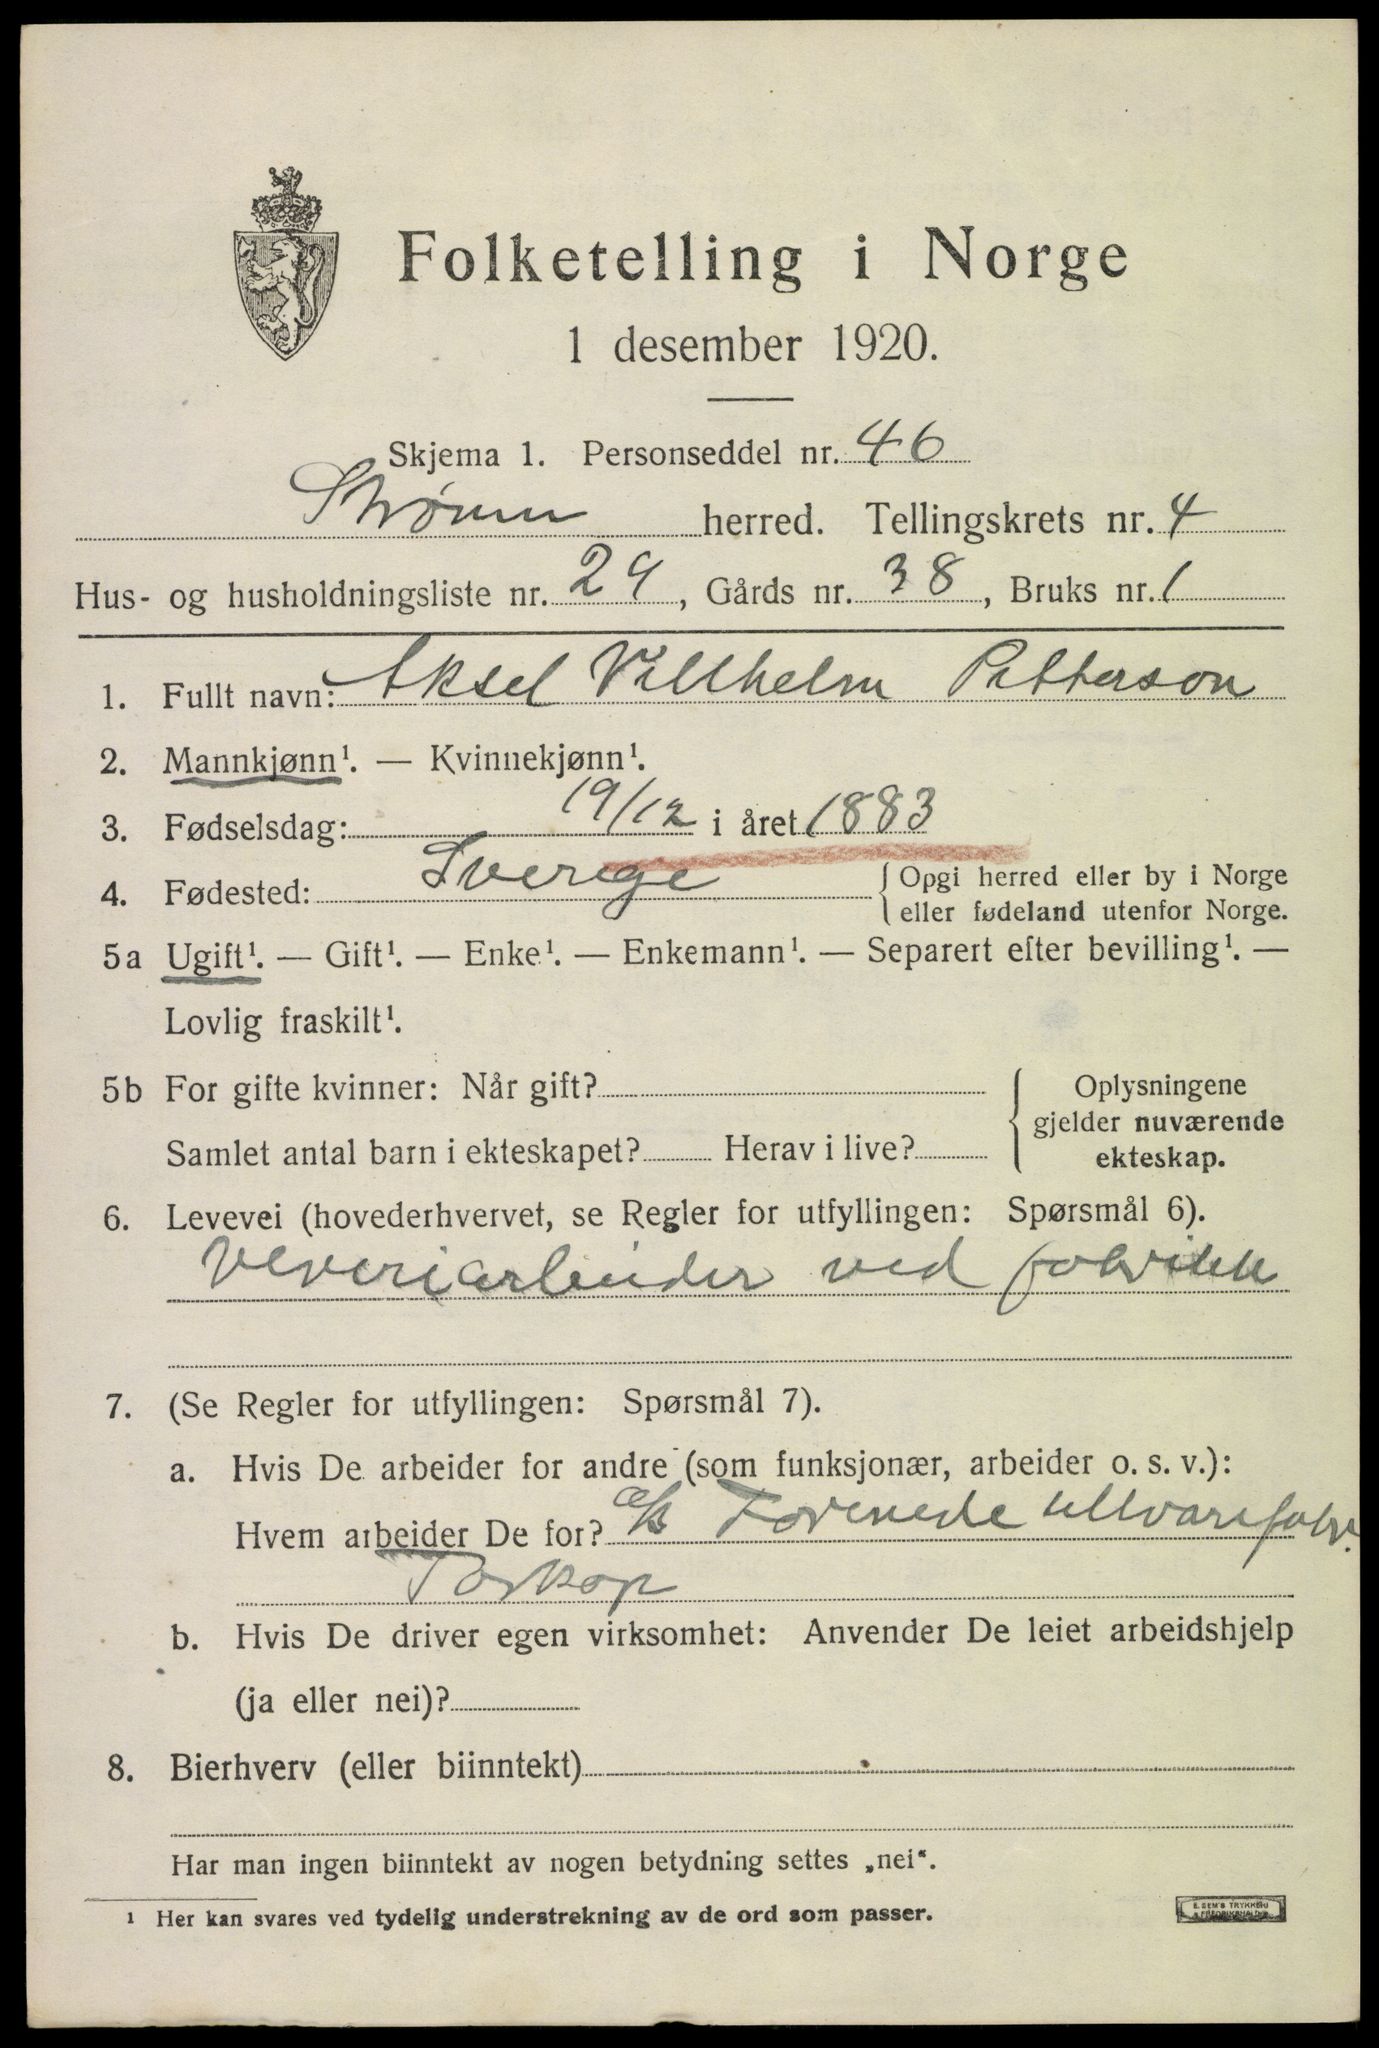 Folketelling i Norge
1 desember 1920.
Skjema 1. Personseddel nr. 46
Strømm herred. Tellingskrets nr. 4
Hus- og husholdningsliste nr. 29, Gårds nr. 38, Bruks nr. 1
1. Fullt navn: Aksel Villhelm Petterson
2. Mannkjønn¹. — Kvinnekjønn¹.
3. Fødselsdag: 19/12 i året 1883
4. Fødested: Sverige { Opgi herred eller by i Norge
eller fødeland utenfor Norge.
5a Ugift¹. — Gift¹. — Enke¹. — Enkemann¹. — Separert efter bevilling¹. —
Lovlig fraskilt¹.
5b For gifte kvinner: Når gift?
Samlet antal barn i ekteskapet? Herav i live?
{ Oplysningene
gjelder nuværende
ekteskap.
6. Levevei (hovederhvervet, se Regler for utfyllingen: Spørsmål 6).
Veveriarbeider ved fabrikk
7. (Se Regler for utfyllingen: Spørsmål 7).
a. Hvis De arbeider for andre (som funksjonær, arbeider o. s. v.):
Hvem arbeider De for? a/s Forenede ullvarefabr.
Torkop
b. Hvis De driver egen virksomhet: Anvender De leiet arbeidshjelp
(ja eller nei)?
8. Bierhverv (eller biinntekt)
Har man ingen biinntekt av nogen betydning settes „nei“.
¹ Her kan svares ved tydelig understrekning av de ord som passer.
E. SEM'S TRYKKERI
FREDRIKSHALD